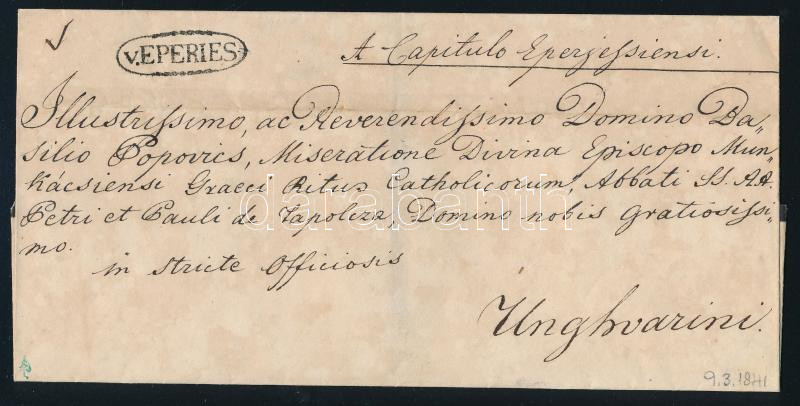 v. EPERIES
A Capitulo Eperjessiensi.
Illustrissimo, ac Reverendissimo Domino Ba„
silio Popovics, Miseratione Divina Episcopo Mun„
kácsiensi Graeci Ritus Catholicorum, Abbati SS. A.A.
Petri et Pauli de Tapolcza, Domino nobis gratiosissi„
mo.
in stricte Officiosis
Unghvarini.
9.3.1841
darabanth